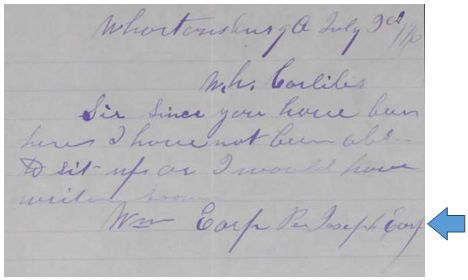 Whartonsburg O July 3rd
W. h. Carliles
Sir Since you have been
here I have not been able
to sit up or I would have
writen soon
Wm Earp Per Joseph Earp